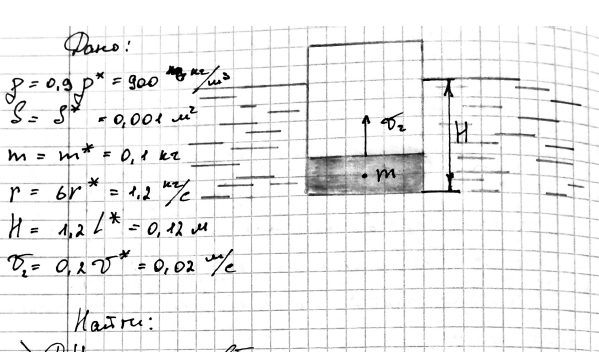 Дано:
ρ = 0,9 ρ* = 900 кг/м³
S = S* = 0,001 м²
m = m* = 0,1 кг
r = 6r* = 1,2 кг/с
H = 1,2 l* = 0,12 м
v₂ = 0,2 v* = 0,02 м/с
v₂
H
m
Найти: